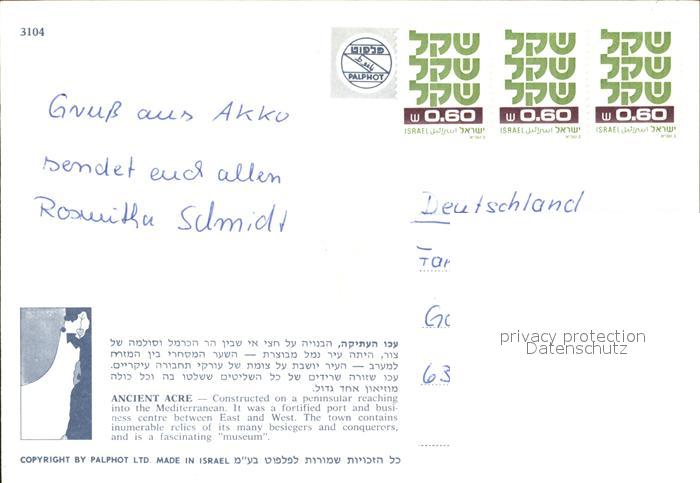 3104
פלפוט
PALPHOT
שקל שקל שקל
שקל שקל שקל
שקל שקל שקל
ש 0.60 ש 0.60 ש 0.60
ISRAEL اسرائيل ישראל ISRAEL اسرائيل ישראל ISRAEL اسرائيل ישראל
Gruß aus Akko
sendet euch allen
Rosmitha Schmidt
Deutschland
63
privacy protection
Datenschutz
עכו העתיקה, הבנויה על חצי אי שבין הר הכרמל וסולמה של
צור, היתה עיר נמל מבוצרת — השער המסחרי בין המזרח
למערב — העיר יושבת על צומת של עורקי תחבורה עיקריים.
עכו שזורה שרידים של כל השליטים ששלטו בה וכל כולה
מוזיאון אחד גדול.
ANCIENT ACRE — Constructed on a peninsular reaching
into the Mediterranean. It was a fortified port and busi-
ness centre between East and West. The town contains
inumerable relics of its many besiegers and conquerors,
and is a fascinating "museum".
COPYRIGHT BY PALPHOT LTD. MADE IN ISRAEL כל הזכויות שמורות לפלפוט בע״מ